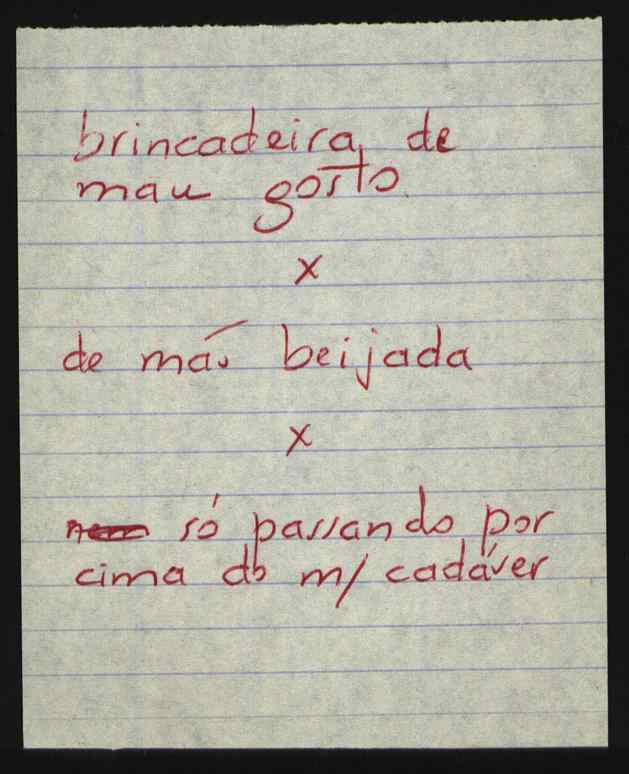 brincadeira de
mau gosto
x
de mão beijada
x
só passando por
cima do m/ cadáver